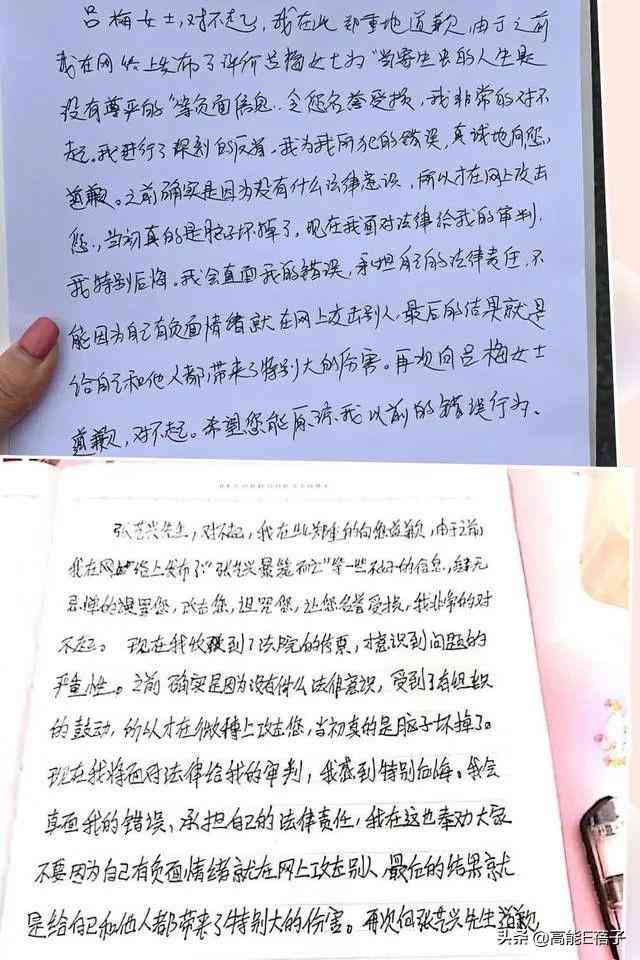 吕梅女士，对不起，我在此郑重地道歉，由于之前
我在网络上发布了评价吕梅女士为“当寄生虫的人生是
没有尊严的”等负面信息，令您名誉受损，我非常的对不
起。我进行了深刻的反省，我为我所犯的错误，真诚地向您，
道歉。之前确实是因为没有什么法律意识，所以才在网上攻击
您，当初真的是脑子坏掉了，现在我面对法律给我的审判，
我特别后悔。我会直面我的错误，承担自己的法律责任，不
能因为自己有负面情绪就在网上攻击别人，最后的结果就是
给自己和他人都带来了特别大的伤害。再次向吕梅女士
道歉，对不起。希望您能原谅我以前的错误行为。
张艺兴先生，对不起，我在此郑重的向您道歉，由于之前
我在网络上发布了“张艺兴最能”等一些不好的信息，肆无
忌惮的谩骂您，攻击您，诅咒您，让您名誉受损，我非常的对
不起。现在我收到了法院的传票，才意识到问题的
严重性。之前确实是因为没有什么法律意识，受到了有组织
的鼓动，所以才在微博上攻击您，当初真的是脑子坏掉了。
现在我将面对法律给我的审判，我感到特别后悔。我会
直面我的错误、承担自己的法律责任，我在这也奉劝大家
不要因为自己有负面情绪就在网上攻击别人，最后的结果就
是给自己和他人都带来了特别大的伤害。再次向张艺兴先生道歉
头条 @高能E蓓子